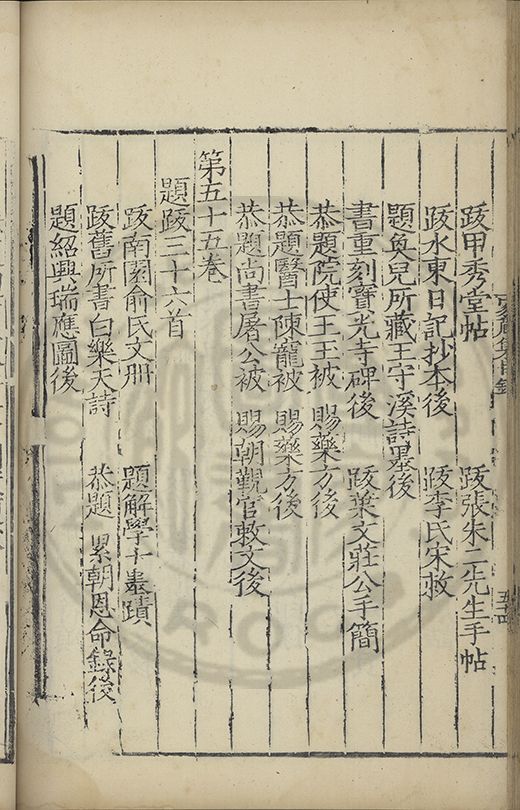 跋甲秀堂帖　跋張朱二先生手帖
跋水東日記抄本後　跋李氏宋敕
題奐兒所藏王守溪詩墨後
書重刻寶光寺碑後　跋葉文莊公手簡
恭題院使王玉被　賜藥方後
恭題醫士陳寵被　賜藥方後
恭題尚書屠公被　賜朝覲官敕文後
第五十五卷
題跋三十六首
跋南園俞氏文冊　題解學士墨蹟
跋舊所書白樂天詩　恭題　累朝恩命錄後
題紹興瑞應圖後